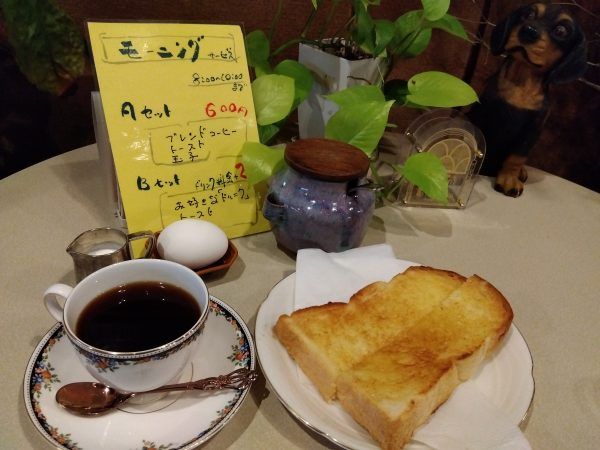 モーニング サービス
8:00〜10:00
まで
Aセット 600円
ブレンドコーヒー
トースト
玉子
Bセット ドリンク料金+2
お好きなドリンク
トースト